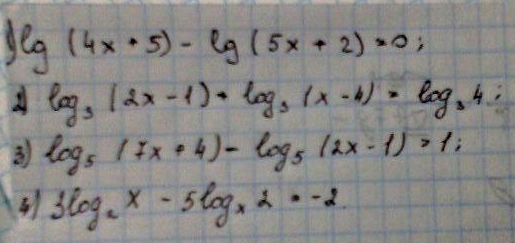 1) lg (4x + 5) - lg (5x + 2) = 0;
2) log₃ (2x - 1) + log₃ (x - 4) = log₃ 4;
3) log₅ (7x + 4) - log₅ (2x - 1) = 1;
4) 3log₂ x - 5logₓ 2 = -2.